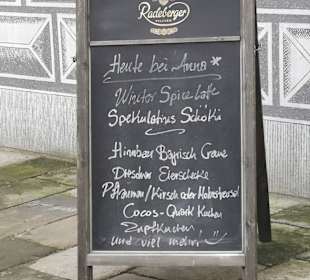 Radeberger
PILSNER
Heute bei Anna
Winter Spice Latte
Spekulatius Schoki
Himbeer Bayrisch Creme
Dresdner Eierschecke
Pflaumen/Kirsch oder Mohnstreusel
Cocos-Quark Kuchen
Zupfkuchen
und viel mehr!